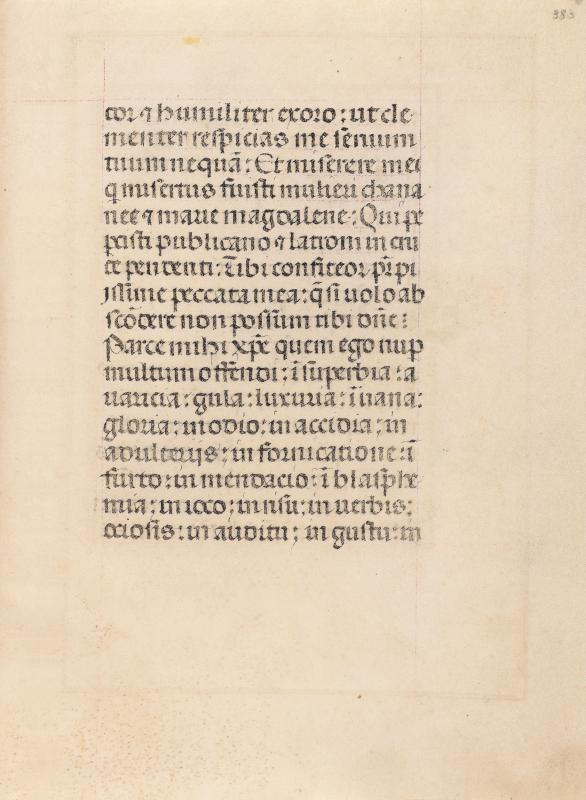 383
tor ⁊ humiliter exoro: ut cle
menter respicias me seruum
tuum nequā: Et miserere mei
q̄ misertus fuisti mulieri chana
nee ⁊ marie magdalene: Qui pe
pcisti publicano ⁊ latroni in cru
ce pendenti: Tibi confiteor pr̄ pi
issime peccata mea: q̄ si uolo ab
scōdere non possum tibi dn̄e:
Parce mihi xp̄e quem ego nup
multum offendi: ī superbia: a
uaricia: gula: luxuria: ī uana:
gloria: in odio: in accidia: in
adulterijs: in fornicatione: ī
furto: in mendacio: ī blasphe
mia: in ioco: in risu: in uerbis:
ociosis: in auditu: in gustu: in